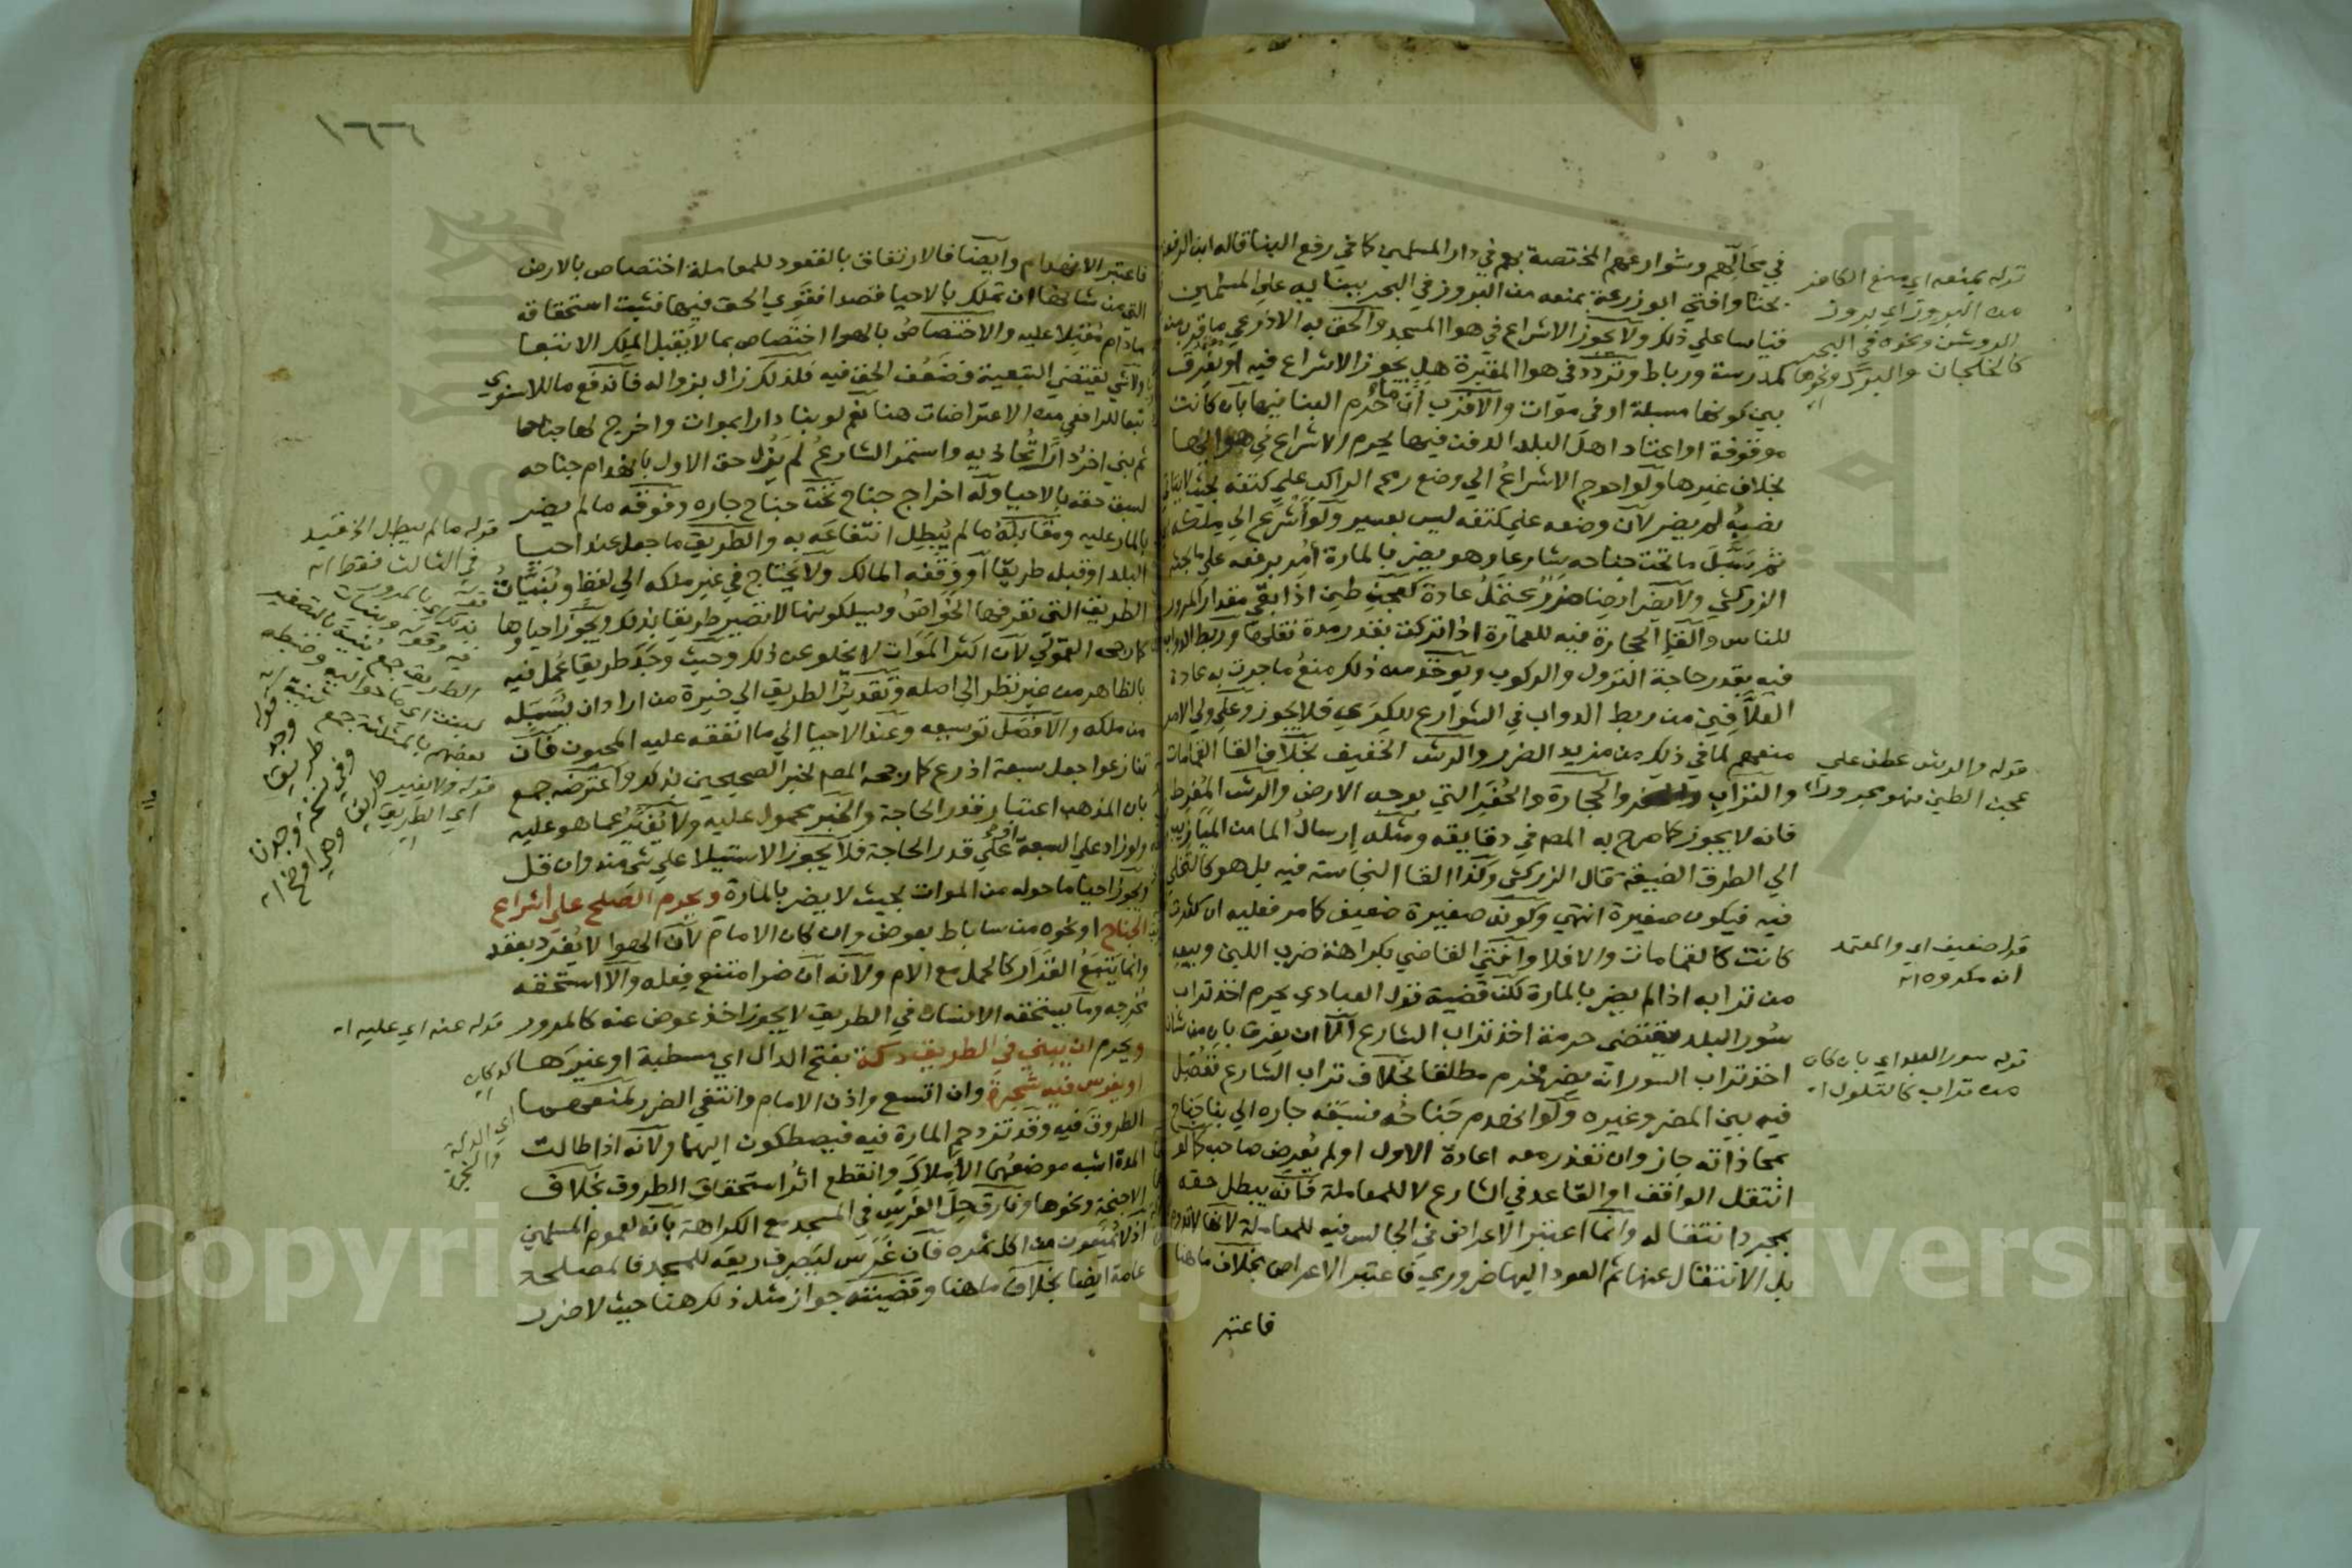 في محالهم وشوارعهم المختصة بهم في دار المسلمين كما في رفع البنا قاله ابن الرفعة
بحثا وافتي ابو زرعة بمنعه من البروز في البحر ببنائه علي المسلمين
قياسا علي ذلك ولا يجوز الاشراع في هوا المسجد والحق به الاذرعي ما قرب منه
كمدرسة ورباط وتردد في هوا المقبرة هل يجوز الاشراع فيه او يفرق
بين كونها مسبلة او في موات والاقرب ان ما حرم البنا فيها بان كانت
موقوفة او اعتاد اهل البلد الدفن فيها يحرم الاشراع في هوائها
بخلاف غيرها ولو احوج الاشراع الي وضع رمح الراكب علي كتفه بحيث لا يتاتي
نصبه لم يضر لان وضعه علي كتفه ليس بعسير ولو اشرع الي ملكه
ثم سبل ما تحت جناحه شارعا وهو يضر بالمارة امر برفعه علي ما بحثه
الزركشي ولا يضر ايضا ضرر يحتمل عادة كعجن طين اذا بقي مقدار المرور
للناس والقاء الحجارة فيه للعمارة اذا تركت بقدر مدة نقلها وربط الدواب
فيه بقدر حاجة النزول والركوب ويؤخذ من ذلك منع ما جرت به عادة
العلافين من ربط الدواب في الشوارع للكري فلا يجوز وعلي ولي الامر
منعهم لما في ذلك من مزيد الضرر والرش الخفيف بخلاف القا القمامات
والتراب والحجارة والحفر التي بوجه الارض والرش المفرط
فانه لا يجوز كما صرح به المصم في دقايقه ومثله ارسال الما من الميازيب
الي الطرق الضيقة قال الزركشي وكذا القا النجاسة فيه بل هو كالتخلي
فيه فيكون صغيرة انتهي وكونه صغيرة ضعيف كما مر فعليه ان كثرت
كانت كالقمامات والا فلا وافتي القاضي بكراهة ضرب اللبن وبيعه
من ترابه اذا لم يضر بالمارة لكن قضية قول العبادي يحرم اخذ تراب
سور البلد يقتضي حرمة اخذ تراب الشارع الا ان يفرق بان من شان
اخذ تراب السور انه يضر فحرم مطلقا بخلاف تراب الشارع ففصل
فيه بين المضر وغيره ولو انهدم جناحه فسبقه جاره الي بنا جناح
بمحاذاته جاز وان تعذر معه اعادة الاول او لم يعرض صاحبه كما لو
انتقل الواقف او القاعد في الشارع لا للمعاملة فانه يبطل حقه
بمجرد انتقاله وانما اعتبر الاعراض في الجالس فيه للمعاملة لانها لا تدوم
بل الانتقال عنها ثم العود اليها ضروري فاعتبر الاعراض بخلاف ما هنا
فاعتبر
قوله بمنعه اي منع الكافر
من البروز اي بروز
الروشن ونحوه في البحر
كالخلجان والبرك ونحوها
قوله والرش عطف علي
عجن الطين فهو مجرور اه
قوله ضعيف اي والمعتمد
انه مكروه اه
قوله سور البلد اي بان كان
من تراب كالتلول اه
١٦٦
فاعتبر الانهدام وايضا فالارتفاق بالقعود للمعاملة اختصاص بالارض
التي من شانها ان تملك بالاحيا قصدا فقوي الحق فيها فثبت استحقاقه
ما دام مقبلا عليه والاختصاص بالهوا اختصاص بما لا يقبل الملك الا تبعا
ولا شي يقتضي التبعية فضعف الحق فيه فلذلك زال بزواله فاندفع ما للاسنوي
تبعا للرافعي من الاعتراضات هنا نعم لو بنا دارا بموات واخرج لها جناحا
ثم بني اخر دارا تحاذيه واستمر الشارع لم يزل حق الاول بانهدام جناحه
لسبق حقه بالاحيا وله اخراج جناح تحت جناح جاره وفوقه ما لم يضر
بالمار عليه ومقابله ما لم يبطل انتفاعه به والطريق ما جعل عند احيا
البلد او قبله طريقا او وقفه المالك ولا يحتاج في غير ملكه الي لفظ وبنيات
الطريق التي تعرفها الخواص ويسلكونها لا تصير طريقا بذلك ويجوز احياوها
كما رجحه القمولي لان اكثر الموات لا يخلو عن ذلك وحيث وجد طريقا عمل فيه
بالظاهر من غير نظر الي اصله وتقدير الطريق الي خيرة من اراد ان يسبله
من ملكه والافضل توسيعه وعند الاحيا الي ما اتفق عليه المحيون فان
تنازعوا جعل سبعة اذرع كما رجحه المصم لخبر الصحيحين بذلك واعترضه جمع
بان المذهب اعتبار قدر الحاجة والخبر محمول عليه ولا يغير عما هو عليه
ولو زاد علي السبعة او علي قدر الحاجة فلا يجوز الاستيلا علي شي منه وان قل
ويجوز احيا ما حوله من الموات بحيث لا يضر بالمارة ويحرم الصلح علي اشراع
الجناح او نحوه من ساباط بعوض وان كان الامام لان الهوا لا يفرد بعقد
وانما يتبع القرار كالحمل مع الام ولانه ان ضر امتنع فعله والا استحقه
مخرجه وما يستحقه الانسان في الطريق لا يجوز اخذ عوض عنه كالمرور
ويحرم ان يبني في الطريق دكة بفتح الدال اي مسطبة او غيرها
او يغرس فيه شجرة وان اتسع واذن الامام وانتفي الضرر لمنعهما
الطروق فيه وقد تزدحم المارة فيه فيصطكون اليهما ولانه اذا طالت
المدة اشبه موضعهما الاملاك وانقطع اثر استحقاق الطروق بخلاف
الاجنحة ونحوها وفارق حل الغرس في المسجد مع الكراهة بانه لعموم المسلمين
اذ لا يمنعون من اكل ثمره فان غرس ليصرف ريعه للمسجد فالمصلحة
عامة ايضا بخلاف ما هنا وقضيته جواز مثل ذلك هنا حيث لا ضرر
قوله ما لم يبطل الخ قيد
في الثالث فقط اه
قوله وجد
طريقا
وفي نسخة وجدنا
طريقا وهي اوضح اه
قوله ولا يغير
اي الطريق
قوله عنه اي عليه اه
اي الدكة
Copyright © King Saud University